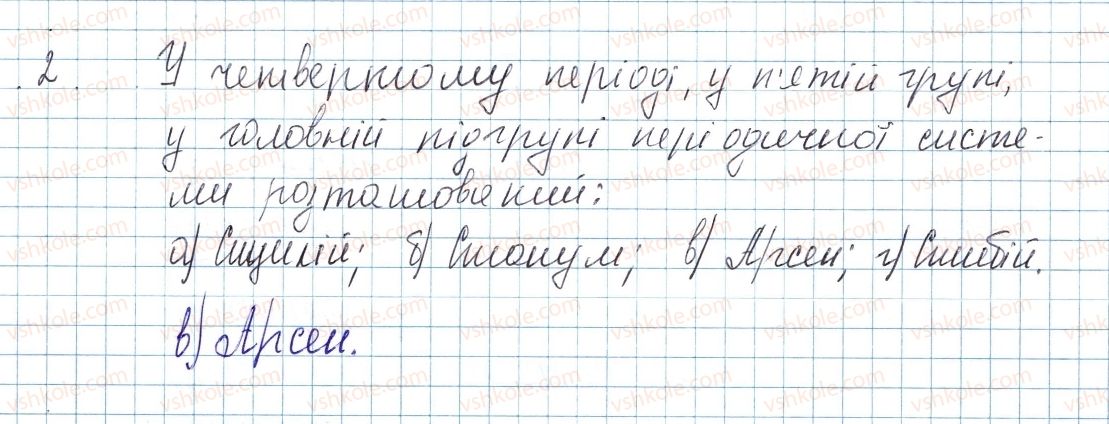 2. У четвертому періоді, у п'ятій групі,
у головній підгрупі періодичної систе-
ми розташований:
а) Силіцій; б) Станум; в) Арсен; г) Стибій.
в) Арсен.